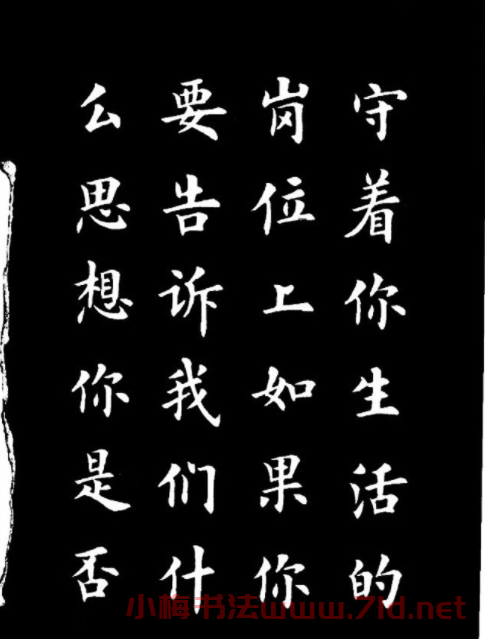 守着你生活的
岗位上如果你
要告诉我们什
么思想你是否
小梅书法www.7ld.net